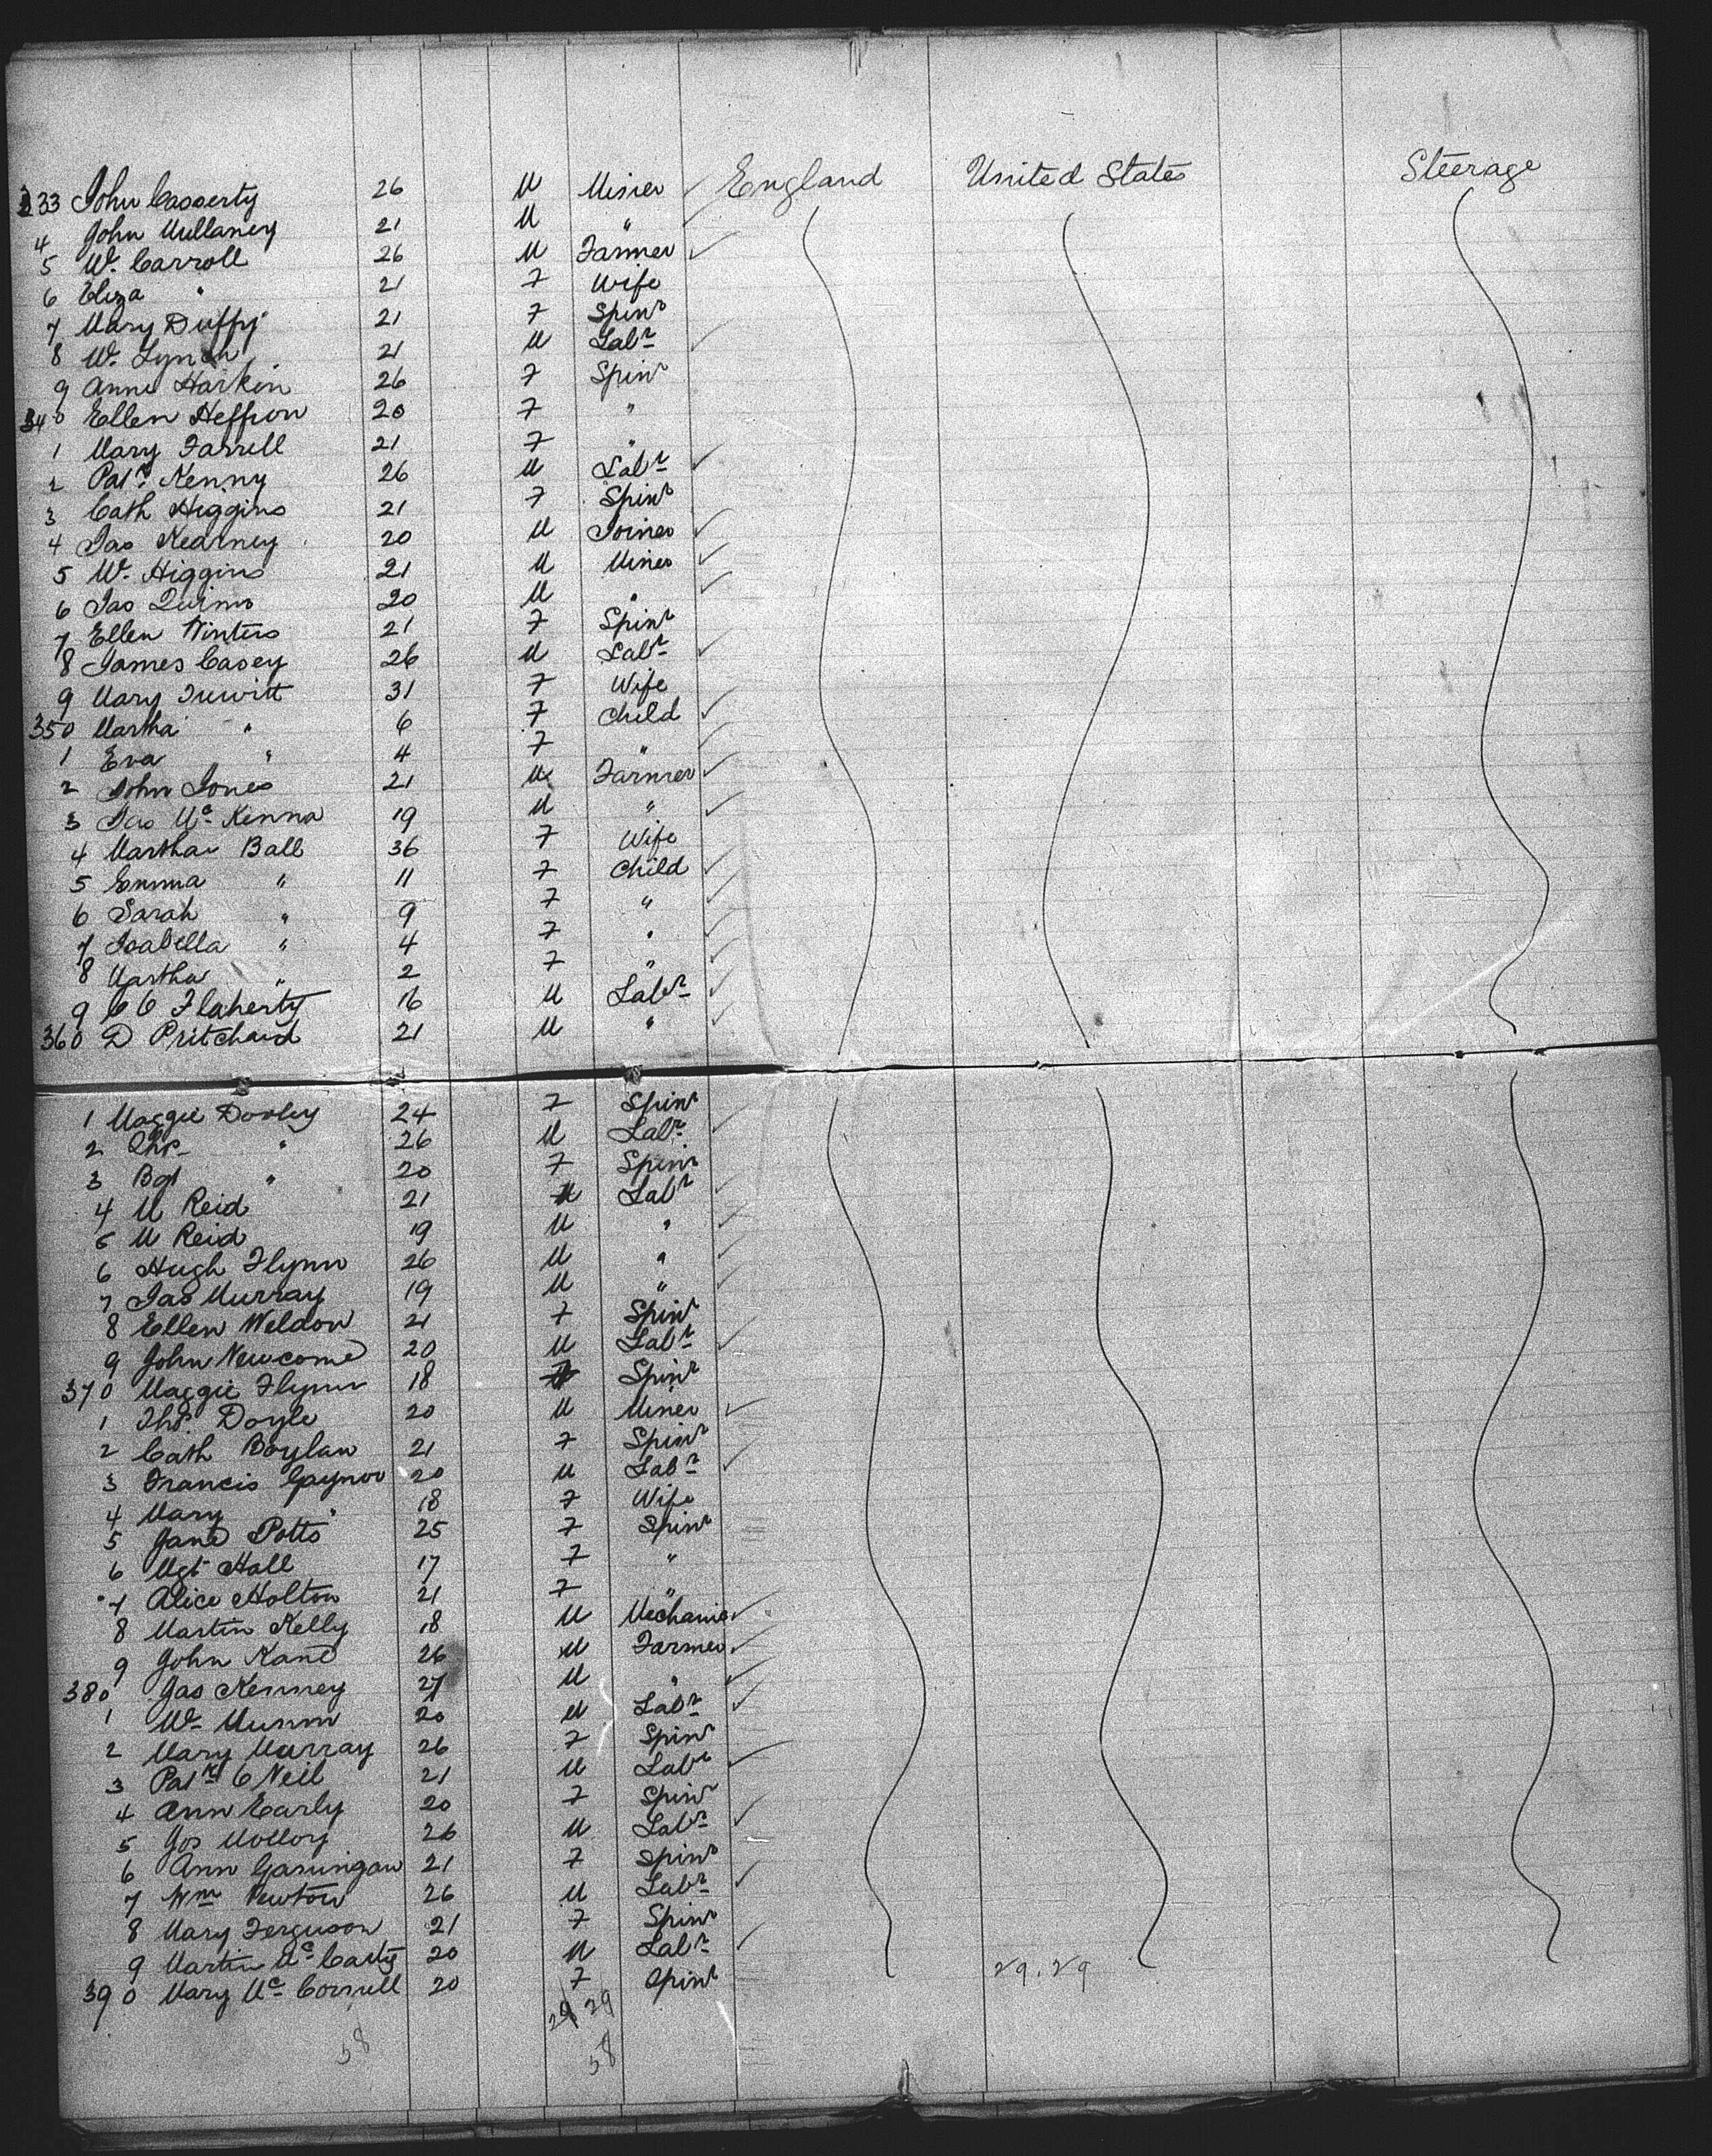 333 John Casserty 26 M Miner England United States Steerage
4 John Mullaney 21 M "
5 Wm Carroll 26 M Farmer
6 Eliza " 21 F Wife
7 Mary Duffy 21 F Spinr
8 Wm Lynch 21 M Labr
9 Anne Harkin 26 F Spinr
340 Ellen Heffron 20 F "
1 Mary Farrell 21 F "
2 Patk Kenny 26 M Labr
3 Cath Higgins 21 F Spinr
4 Jas Kearney 20 M Joiner
5 Wm Higgins 21 M Miner
6 Jas Quinn 20 M "
7 Ellen Winters 21 F Spinr
8 James Casey 26 M Labr
9 Mary Truwitt 31 F Wife
350 Martha " 6 F Child
1 Eva " 4 F "
2 John Jones 21 M Farmer
3 Jas McKenna 19 M "
4 Martha Ball 36 F Wife
5 Emma " 11 F Child
6 Sarah " 9 F "
7 Isabella " 4 F "
8 Martha " 2 F "
9 C O Flaherty 16 M Labr
360 D Pritchard 21 M "
1 Maggie Dooley 24 F Spinr
2 Thos " 26 M Labr
3 Bgt " 20 F Spinr
4 M Reid 21 M Labr
5 M Reid 19 M "
6 Hugh Flynn 26 M "
7 Jas Murray 19 M "
8 Ellen Weldon 21 F Spinr
9 John Newcome 20 M Labr
370 Maggie Flynn 18 F Spinr
1 Thos Doyle 20 M Miner
2 Cath Boylan 21 F Spinr
3 Francis Gaynor 20 M Labr
4 Mary " 18 F Wife
5 Jane Potts 25 F Spinr
6 Mgt Hall 17 F "
7 Alice Holton 21 F "
8 Martin Kelly 18 M Mechanic
9 John Kane 26 M Farmer
380 Jas Kenney 27 M "
1 Wm Munn 20 M Labr
2 Mary Murray 26 F Spinr
3 Patk O Neil 21 M Labr
4 Ann Early 20 F Spinr
5 Jos Molloy 26 M Labr
6 Ann Garingan 21 F Spinr
7 Wm Newton 26 M Labr
8 Mary Ferguson 21 F Spinr
9 Martin McCarty 20 M Labr
390 Mary McCornell 20 F Spinr
29 29 29.29
58 58